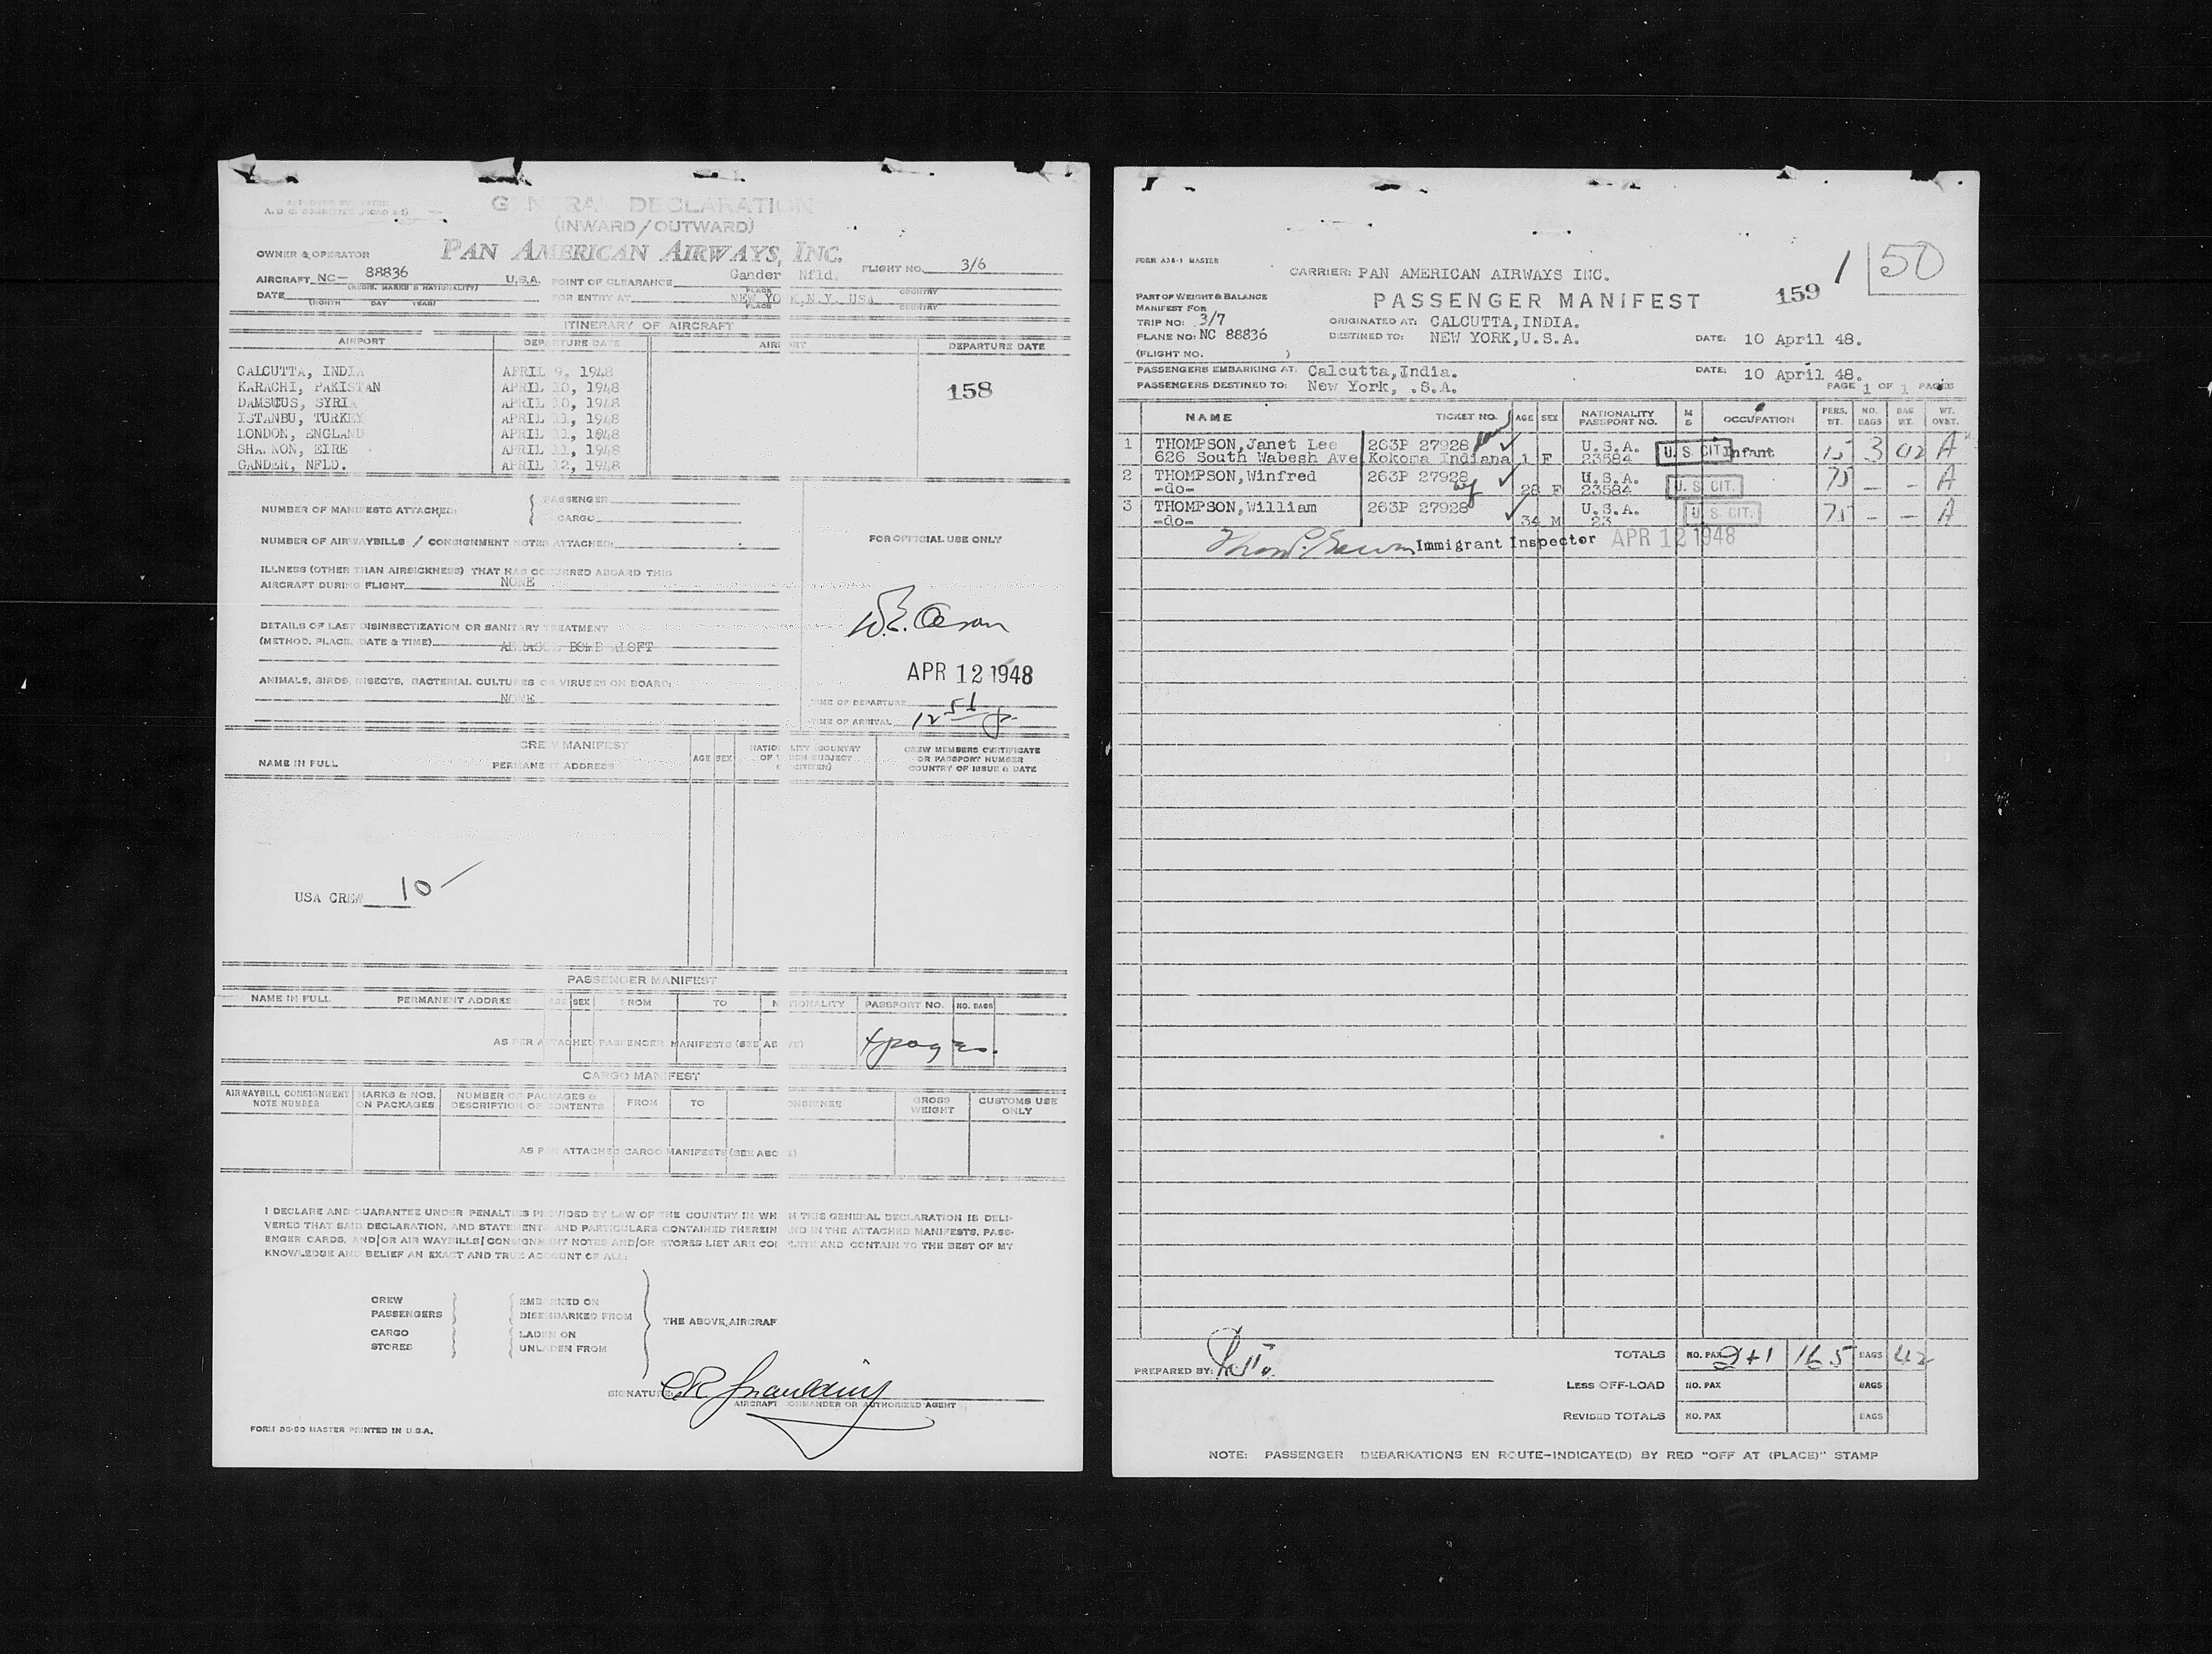 APPROVED BY
GENERAL DECLARATION
(INWARD/OUTWARD)
OWNER & OPERATOR PAN AMERICAN AIRWAYS, INC.
AIRCRAFT NC- 88836 U.S.A. POINT OF CLEARANCE Gander Nfld. FLIGHT NO. 3/6
(REGIS. MARKS & NATIONALITY) PLACE COUNTRY
DATE FOR ENTRY AT NEW YO K,N.Y. USA
(MONTH DAY YEAR) PLACE COUNTRY
ITINERARY OF AIRCRAFT
AIRPORT DEPARTURE DATE AIRPORT DEPARTURE DATE
CALCUTTA, INDIA APRIL 9, 1948
KARACHI, PAKISTAN APRIL 10, 1948 158
DAMSCUS, SYRIA APRIL 10, 1948
ISTANBU, TURKEY APRIL 11, 1948
LONDON, ENGLAND APRIL 11, 1948
SHANNON, EIRE APRIL 11, 1948
GANDER, NFLD. APRIL 12, 1948
NUMBER OF MANIFESTS ATTACHED: PASSENGER
CARGO
NUMBER OF AIRWAYBILLS / CONSIGNMENT NOTES ATTACHED: FOR OFFICIAL USE ONLY
ILLNESS (OTHER THAN AIRSICKNESS) THAT HAS OCCURRED ABOARD THIS
AIRCRAFT DURING FLIGHT NONE
DETAILS OF LAST DISINSECTIZATION OR SANITARY TREATMENT
(METHOD, PLACE, DATE & TIME)
APR 12 1948
ANIMALS, BIRDS, INSECTS, BACTERIAL CULTURES OR VIRUSES ON BOARD:
NONE
TIME OF DEPARTURE
TIME OF ARRIVAL
CREW MANIFEST
NAME IN FULL PERMANENT ADDRESS AGE SEX NATIONALITY (COUNTRY OF WHICH SUBJECT OR CITIZEN) CREW MEMBERS CERTIFICATE OR PASSPORT NUMBER COUNTRY OF ISSUE & DATE
USA CREW 10
PASSENGER MANIFEST
NAME IN FULL PERMANENT ADDRESS AGE SEX FROM TO NATIONALITY PASSPORT NO. NO. BAGS
AS PER ATTACHED PASSENGER MANIFESTS (SEE ABOVE) pages.
CARGO MANIFEST
AIRWAYBILL CONSIGNMENT NOTE NUMBER MARKS & NOS. ON PACKAGES NUMBER OF PACKAGES & DESCRIPTION OF CONTENTS FROM TO CONSIGNEE GROSS WEIGHT CUSTOMS USE ONLY
AS PER ATTACHED CARGO MANIFESTS (SEE ABOVE)
I DECLARE AND GUARANTEE UNDER PENALTIES PROVIDED BY LAW OF THE COUNTRY IN WHICH THIS GENERAL DECLARATION IS DELI-
VERED THAT SAID DECLARATION, AND STATEMENTS AND PARTICULARS CONTAINED THEREIN AND IN THE ATTACHED MANIFESTS, PASS-
ENGER CARDS, AND/OR AIR WAYBILLS/CONSIGNMENT NOTES AND/OR STORES LIST ARE COMPLETE AND CONTAIN TO THE BEST OF MY
KNOWLEDGE AND BELIEF AN EXACT AND TRUE ACCOUNT OF ALL:
CREW EMBARKED ON
PASSENGERS DISEMBARKED FROM
THE ABOVE AIRCRAFT
CARGO LADEN ON
STORES UNLADEN FROM
SIGNATURE C R Spaulding
AIRCRAFT COMMANDER OR AUTHORIZED AGENT
FORM 35-50 MASTER PRINTED IN U.S.A.
FORM A38-1 MASTER
1 50
CARRIER: PAN AMERICAN AIRWAYS INC.
PART OF WEIGHT & BALANCE
MANIFEST FOR
PASSENGER MANIFEST 159
TRIP NO: 3/7 ORIGINATED AT: CALCUTTA,INDIA.
PLANE NO: NC 88836 DESTINED TO: NEW YORK,U.S.A. DATE: 10 April 48.
(FLIGHT NO. )
PASSENGERS EMBARKING AT: Calcutta,India. DATE: 10 April 48.
PASSENGERS DESTINED TO: New York, .S.A. PAGE 1 OF 1 PAGES
NAME TICKET NO. AGE SEX NATIONALITY PASSPORT NO. M S OCCUPATION PERS. WT. NO. BAGS BAG WT. WT. OVRT.
1 THOMPSON,Janet Lee 263P 27928 U.S.A. U.S. CIT. Infant 15 3 42 A
626 South Wabesh Ave Kokoma Indiana 1 F 23584
2 THOMPSON,Winfred 263P 27928 U.S.A. U.S. CIT. 75 - - A
-do- 28 F 23584
3 THOMPSON,William 263P 27928 U.S.A. U.S. CIT. 75 - - A
-do- 34 M 23
Immigrant Inspector APR 12 1948
TOTALS NO. PAX 2+1 165 BAGS 42
PREPARED BY:
LESS OFF-LOAD NO. PAX BAGS
REVISED TOTALS NO. PAX BAGS
NOTE: PASSENGER DEBARKATIONS EN ROUTE-INDICATE(D) BY RED "OFF AT (PLACE)" STAMP